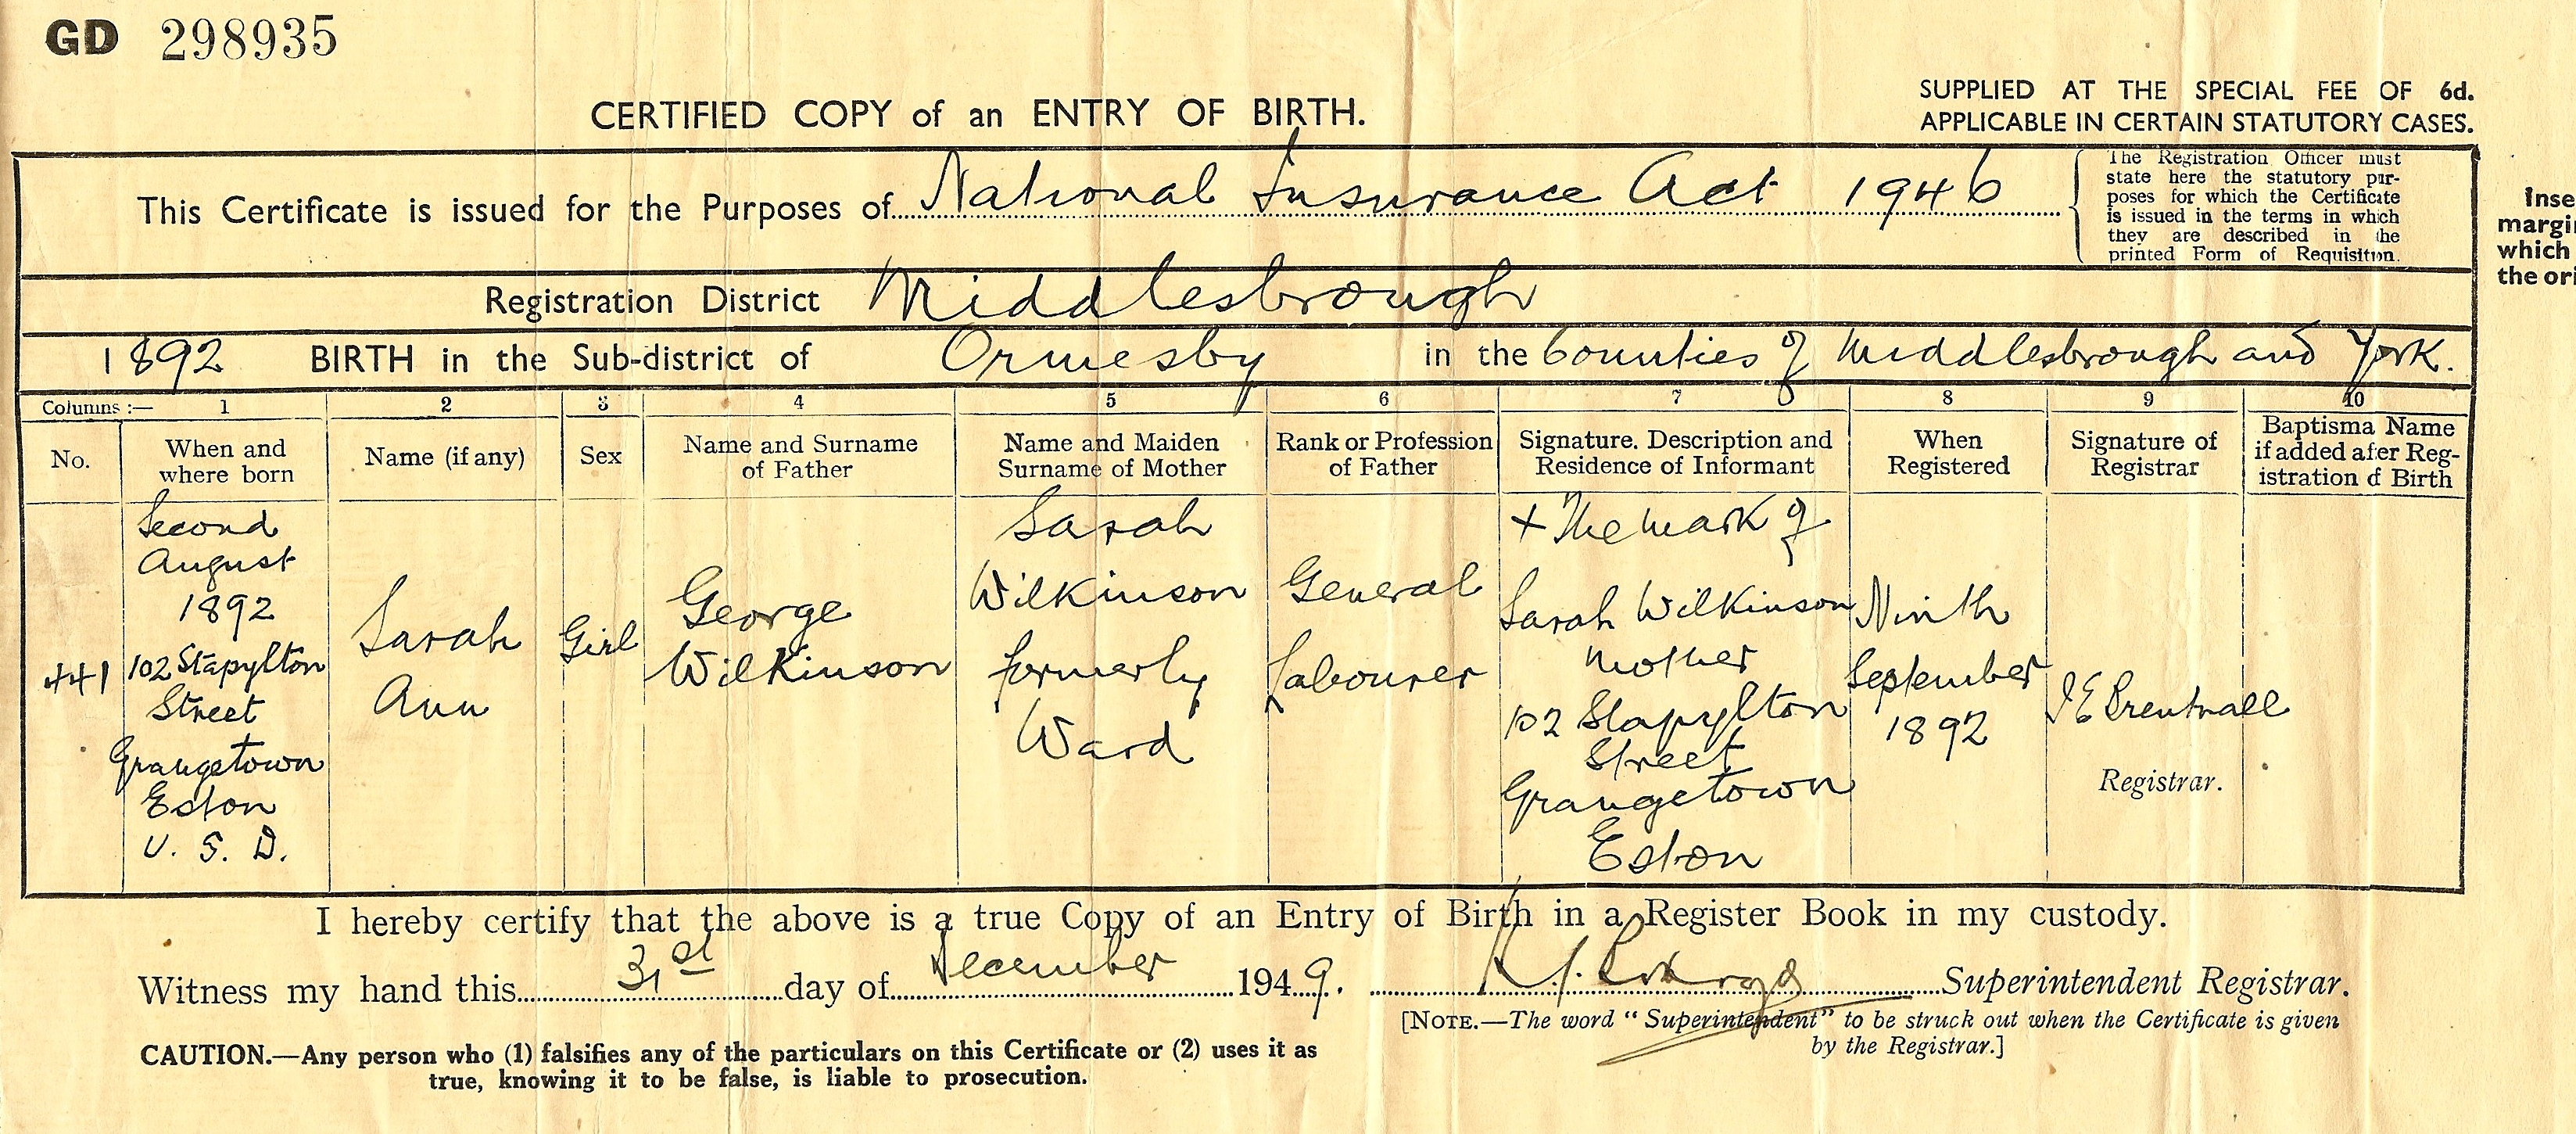 GD 298935
CERTIFIED COPY of an ENTRY OF BIRTH.
SUPPLIED AT THE SPECIAL FEE OF 6d.
APPLICABLE IN CERTAIN STATUTORY CASES.
This Certificate is issued for the Purposes of National Insurance Act 1946
The Registration Officer must
state here the statutory pur-
poses for which the Certificate
is issued in the terms in which
they are described in the
printed Form of Requisition.
Inse
margi
which
the ori
Registration District Middlesbrough
1892 BIRTH in the Sub-district of Ormesby in the Counties of Middlesbrough and York.
Columns :— 1 2 3 4 5 6 7 8 9 10
No.
When and
where born
Name (if any)
Sex
Name and Surname
of Father
Name and Maiden
Surname of Mother
Rank or Profession
of Father
Signature. Description and
Residence of Informant
When
Registered
Signature of
Registrar
Baptisma Name
if added after Reg-
istration of Birth
441
Second
August
1892
102 Stapylton
Street
Grangetown
Eston
U. S. D.
Sarah
Ann
Girl
George
Wilkinson
Sarah
Wilkinson
formerly
Ward
General
Labourer
+ The mark of
Sarah Wilkinson
Mother
102 Stapylton
Street
Grangetown
Eston
Ninth
September
1892
J E Brentnall
Registrar.
I hereby certify that the above is a true Copy of an Entry of Birth in a Register Book in my custody.
Witness my hand this 31st day of December 1949. Superintendent Registrar.
[NOTE.—The word "Superintendent" to be struck out when the Certificate is given
by the Registrar.]
CAUTION.—Any person who (1) falsifies any of the particulars on this Certificate or (2) uses it as
true, knowing it to be false, is liable to prosecution.